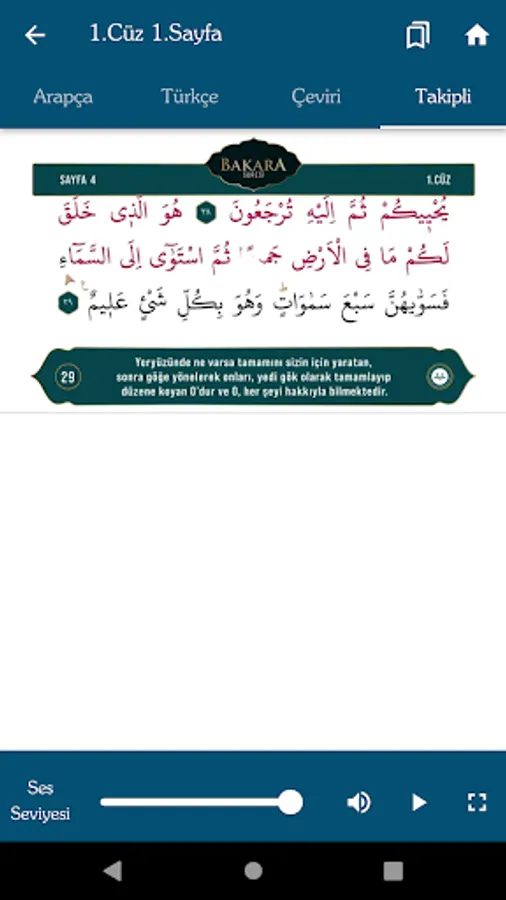 1.Cüz 1.Sayfa
Arapça Türkçe Çeviri Takipli
SAYFA 4 BAKARA SURESİ 1.CÜZ
يُحْي۪يكُمْ ثُمَّ اِلَيْهِ تُرْجَعُونَ ٢٨ هُوَ الَّذ۪ي خَلَقَ
لَكُمْ مَا فِي الْاَرْضِ ثُمَّ اسْتَوٰٓى اِلَى السَّمَٓاءِ
فَسَوّٰيهُنَّ سَبْعَ سَمٰوَاتٍۜ وَهُوَ بِكُلِّ شَيْءٍ عَل۪يمٌ ٢٩
29
Yeryüzünde ne varsa tamamını sizin için yaratan,
sonra göğe yönelerek onları, yedi gök olarak tamamlayıp
düzene koyan O'dur ve O, her şeyi hakkıyla bilmektedir.
Ses
Seviyesi